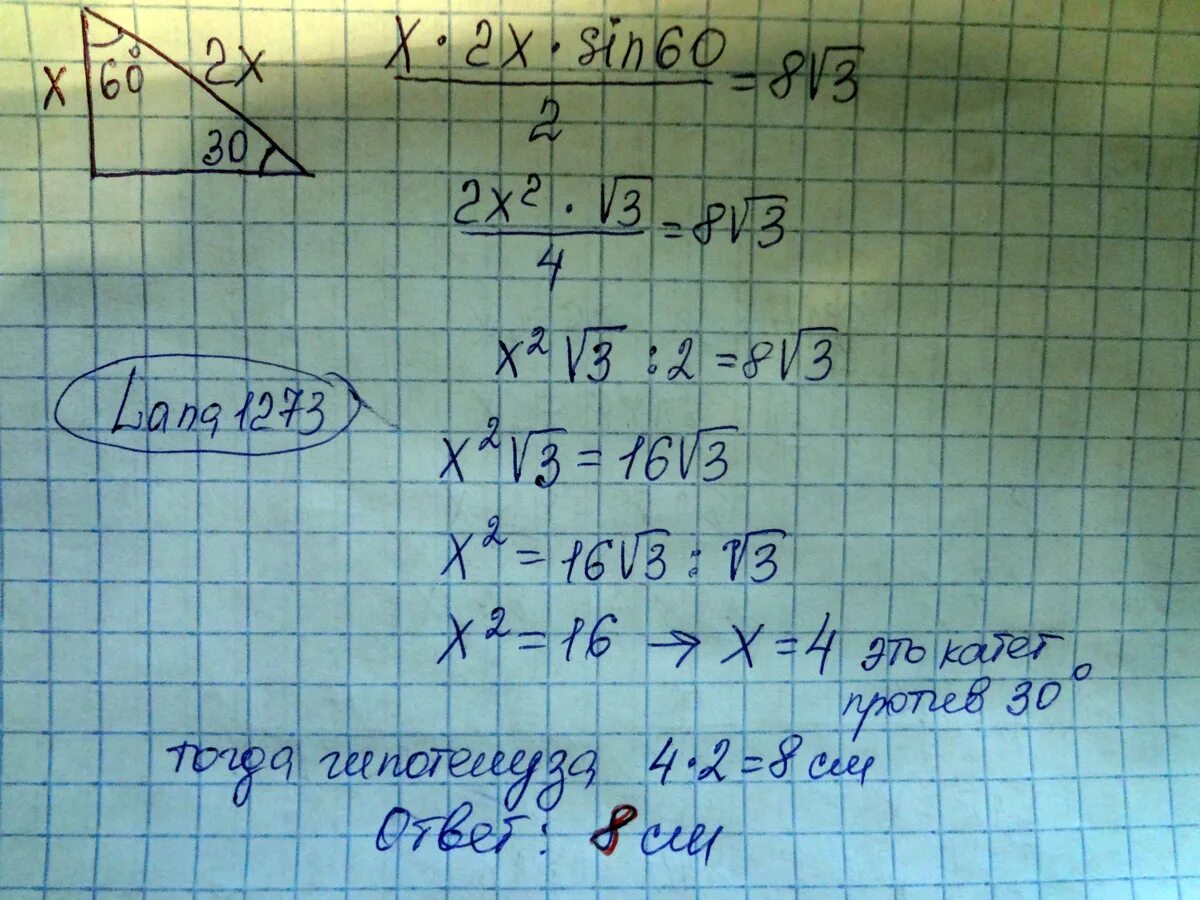 x 60° 2x
30
x · 2x · sin60 / 2 = 8√3
2x² · √3 / 4 = 8√3
x² √3 : 2 = 8√3
Lana1273
x² √3 = 16√3
x² = 16√3 : √3
x² = 16 → x = 4 это катет
против 30°
тогда гипотенуза 4·2=8 см
Ответ: 8 см